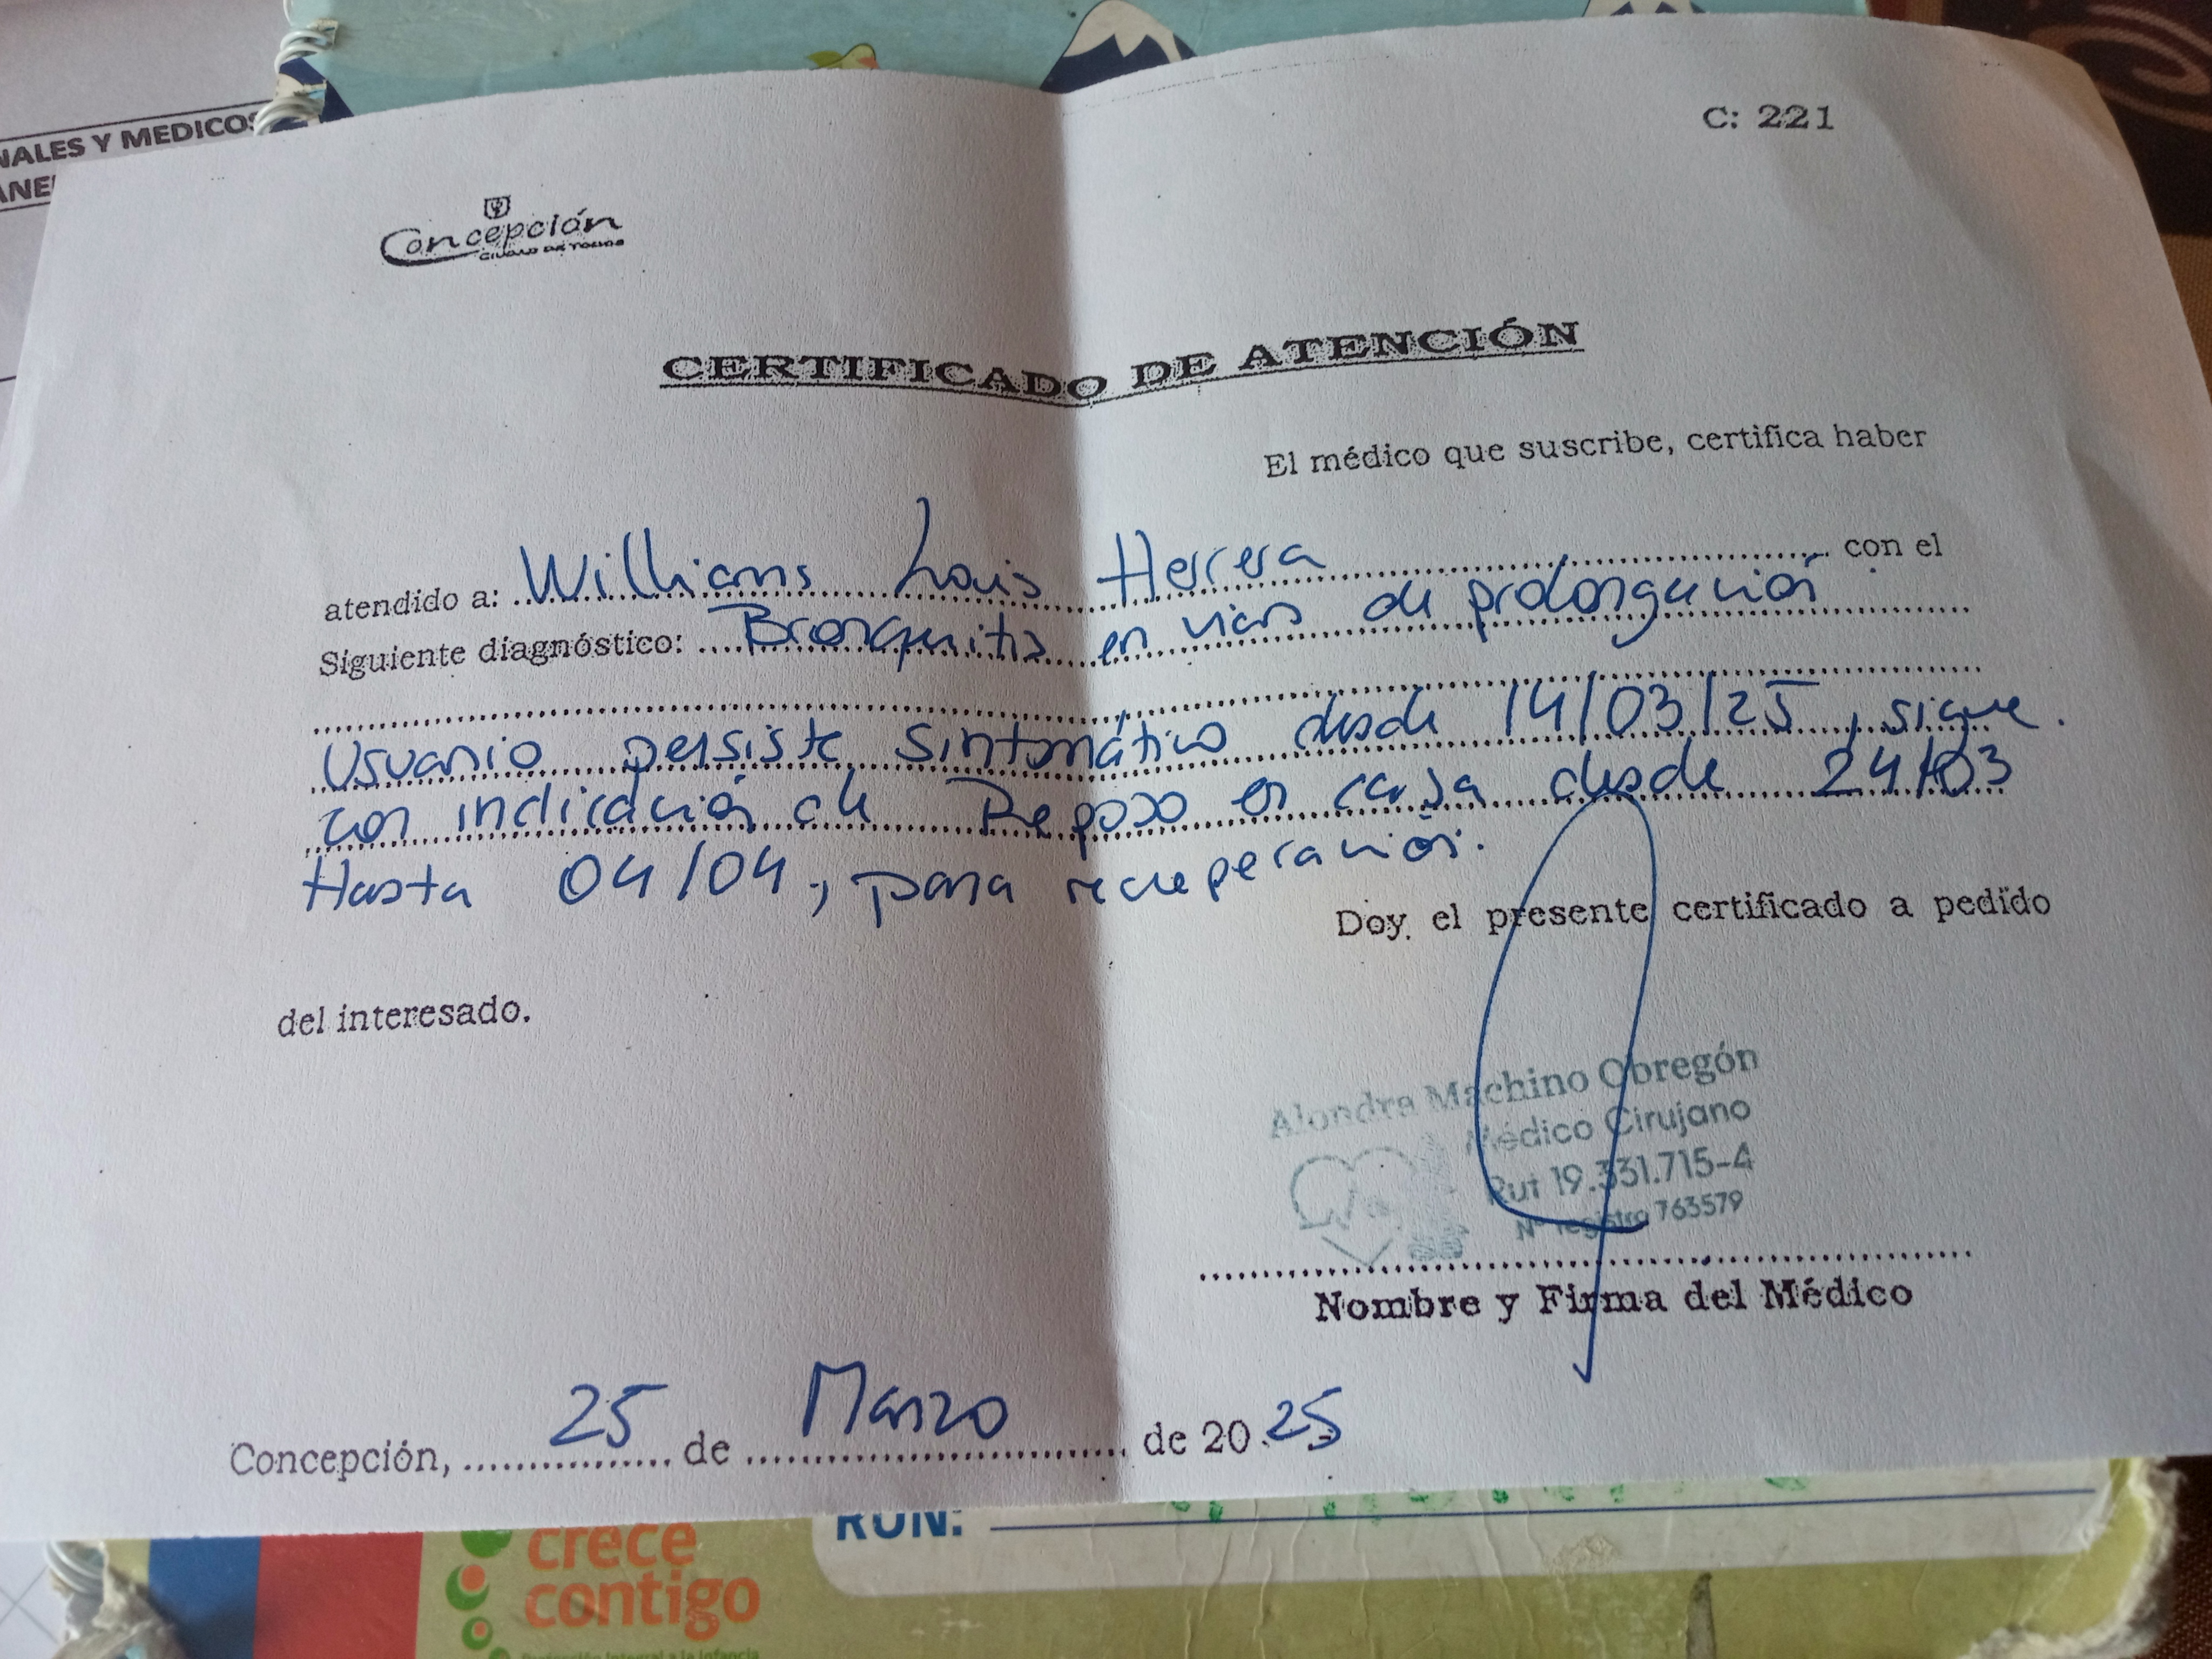 NALES Y MEDICOS
C: 221
Concepción
CIUDAD DE TODOS
CERTIFICADO DE ATENCIÓN
El médico que suscribe, certifica haber
atendido a: Willians Louis Herrera con el
Siguiente diagnóstico: Bronquitis en vias de prolongación
Usuario persiste sintomático desde 14/03/25, sigue
con indicación de Reposo en casa desde 24/03
Hasta 04/04, para recuperación.
Doy el presente certificado a pedido
del interesado.
Alondra Machino Obregón
Médico Cirujano
Rut 19.331.715-4
Nº registro 763579
Nombre y Firma del Médico
Concepción, 25 de Marzo de 2025
RUN:
crece
contigo
Protección Integral a la Infancia